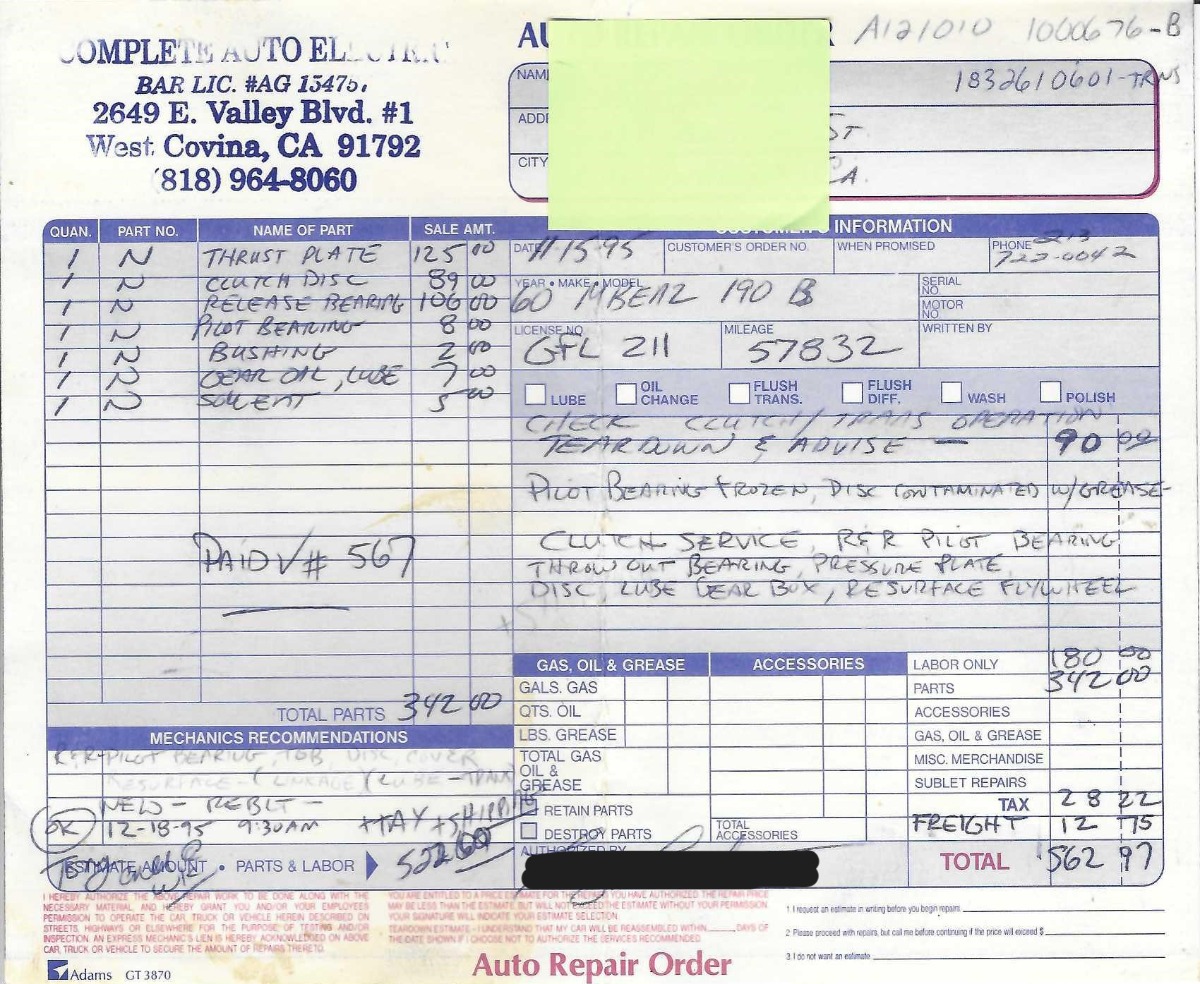 COMPLETE AUTO ELECTRIC
BAR LIC. #AG 15475
2649 E. Valley Blvd. #1
West Covina, CA 91792
(818) 964-8060
AU R A121010 1000676-B
NAME 1832610601-TRNS
ADDRE ST
CITY CA.
QUAN. PART NO. NAME OF PART SALE AMT.
1 N THRUST PLATE 125 00
1 N CLUTCH DISC 89 00
1 N RELEASE BEARING 106 00
1 N PILOT BEARING 8 00
1 N BUSHING 2 00
1 N GEAR OIL, LUBE 7 00
1 N SOLVENT 5 00
PAID V# 567
TOTAL PARTS 342 00
MECHANICS RECOMMENDATIONS
R&R PILOT BEARING, TOB, DISC, COVER
RESURFACE - (LINKAGE) (LUBE - TRANS)
NEW - REBLT -
OK 12-18-95 9:30AM +TAX + SHIPPING
ESTIMATE AMOUNT • PARTS & LABOR 522.00
CUSTOMER'S INFORMATION
DATE 11-15-95 CUSTOMER'S ORDER NO. WHEN PROMISED PHONE 213
722-0042
YEAR • MAKE • MODEL 60 MBENZ 190 B
SERIAL NO.
MOTOR NO.
LICENSE NO. GFL 211 MILEAGE 57832 WRITTEN BY
LUBE OIL CHANGE FLUSH TRANS. FLUSH DIFF. WASH POLISH
CHECK CLUTCH/TRANS OPERATION
TEARDOWN & ADVISE — 90 00
PILOT BEARING FROZEN, DISC CONTAMINATED W/GREASE-
CLUTCH SERVICE, R&R PILOT BEARING
THROW OUT BEARING, PRESSURE PLATE,
DISC, LUBE GEAR BOX, RESURFACE FLYWHEEL
GAS, OIL & GREASE ACCESSORIES
GALS. GAS
QTS. OIL
LBS. GREASE
TOTAL GAS OIL & GREASE
RETAIN PARTS
DESTROY PARTS TOTAL ACCESSORIES
AUTHORIZED BY
LABOR ONLY 180 00
PARTS 342 00
ACCESSORIES
GAS, OIL & GREASE
MISC. MERCHANDISE
SUBLET REPAIRS
TAX 28 22
FREIGHT 12 75
TOTAL 562 97
I HEREBY AUTHORIZE THE ABOVE REPAIR WORK TO BE DONE ALONG WITH THE
NECESSARY MATERIAL, AND HEREBY GRANT YOU AND/OR YOUR EMPLOYEES
PERMISSION TO OPERATE THE CAR, TRUCK OR VEHICLE HEREIN DESCRIBED ON
STREETS, HIGHWAYS OR ELSEWHERE FOR THE PURPOSE OF TESTING AND/OR
INSPECTION. AN EXPRESS MECHANIC'S LIEN IS HEREBY ACKNOWLEDGED ON ABOVE
CAR, TRUCK OR VEHICLE TO SECURE THE AMOUNT OF REPAIRS THERETO.
YOU ARE ENTITLED TO A PRICE ESTIMATE FOR THE REPAIRS YOU HAVE AUTHORIZED. THE REPAIR PRICE
MAY BE LESS THAN THE ESTIMATE BUT WILL NOT EXCEED THE ESTIMATE WITHOUT YOUR PERMISSION
YOUR SIGNATURE WILL INDICATE YOUR ESTIMATE SELECTION.
TEARDOWN ESTIMATE - I UNDERSTAND THAT MY CAR WILL BE REASSEMBLED WITHIN DAYS OF
THE DATE SHOWN IF I CHOOSE NOT TO AUTHORIZE THE SERVICES RECOMMENDED.
1. I request an estimate in writing before you begin repairs.
2. Please proceed with repairs, but call me before continuing if the price will exceed $
3. I do not want an estimate
Adams GT 3870
Auto Repair Order